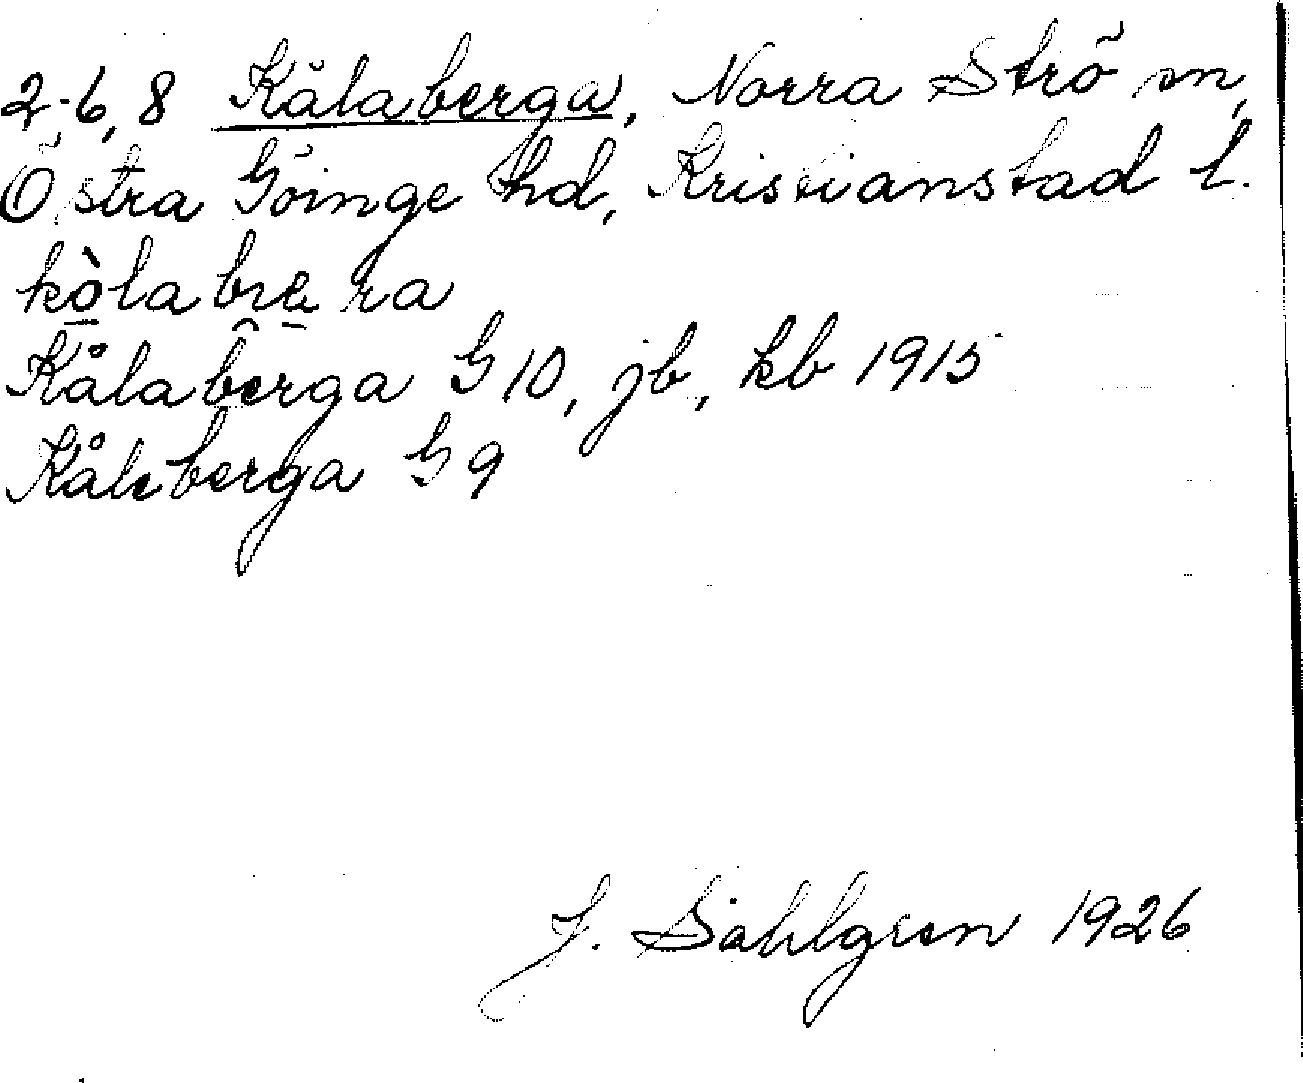 2-6, 8 Kålaberga, Norra Strö sn,
Östra Göinge hd, Kristianstad l.
kòlabræra
Kålaberga G 10, jb, kb 1915
Kåleberga G 9
J. Sahlgren 1926